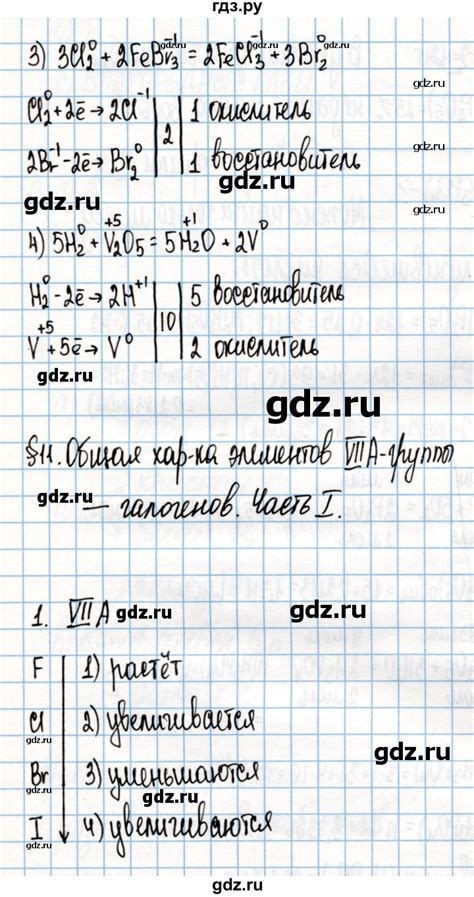 гдз.ру
3) 3Cl₂⁰ + 2FeBr₃⁻¹ = 2FeCl₃⁻¹ + 3Br₂⁰
Cl₂⁰ + 2ē → 2Cl⁻¹ | 2 | 1 окислитель
2Br⁻¹ - 2ē → Br₂⁰ | 1 восстановитель
gdz.ru gdz.ru
4) 5H₂⁰ + V₂⁺⁵O₅ = 5H₂⁺¹O + 2V⁰
H₂⁰ - 2ē → 2H⁺¹ | 10 | 5 восстановитель
V⁺⁵ + 5ē → V⁰ | 2 окислитель
gdz.ru
gdz.ru
§11. Общая хар-ка элементов VIIA-группы
gdz.ru
— галогенов. Часть I.
1. VIIA gdz.ru gdz.ru
F 1) растёт
Cl 2) увеличивается
gdz.ru
Br 3) уменьшаются
gdz.ru
I 4) увеличиваются
gdz.ru gdz.ru